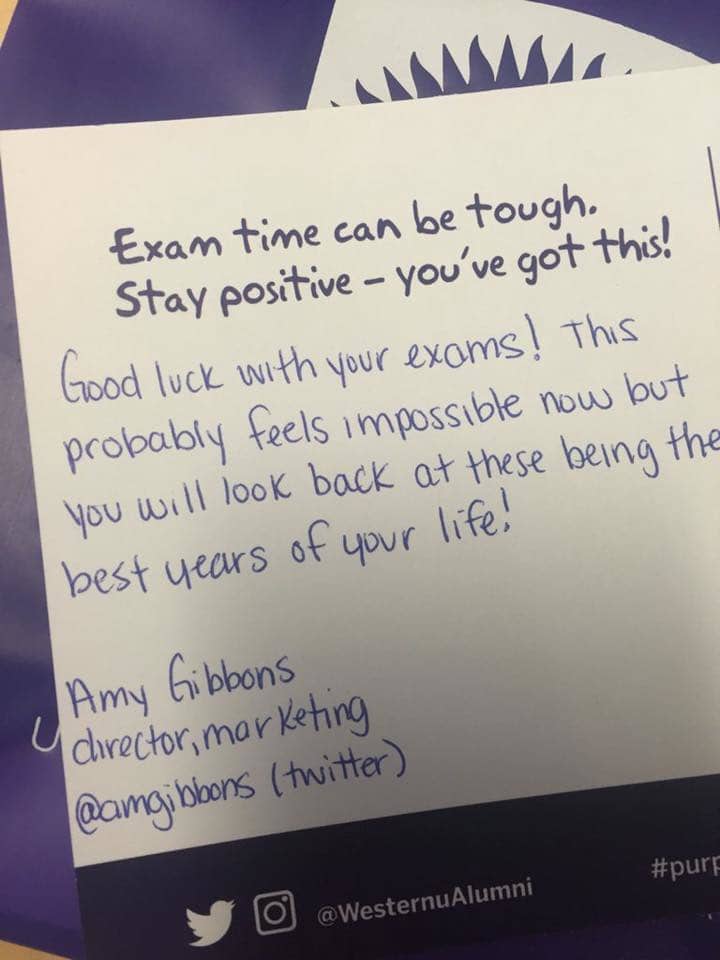 Exam time can be tough.
Stay positive – you've got this!
Good luck with your exams! This
probably feels impossible now but
you will look back at these being the
best years of your life!
Amy Gibbons
director, marketing
@amgibbons (twitter)
@WesternuAlumni
#purp